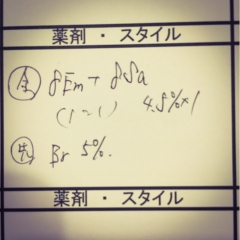 薬剤 ・ スタイル
全 8Em + 8Sa
(1=1) 4.5%×1
先 Br 5%.
薬剤 ・ スタイル